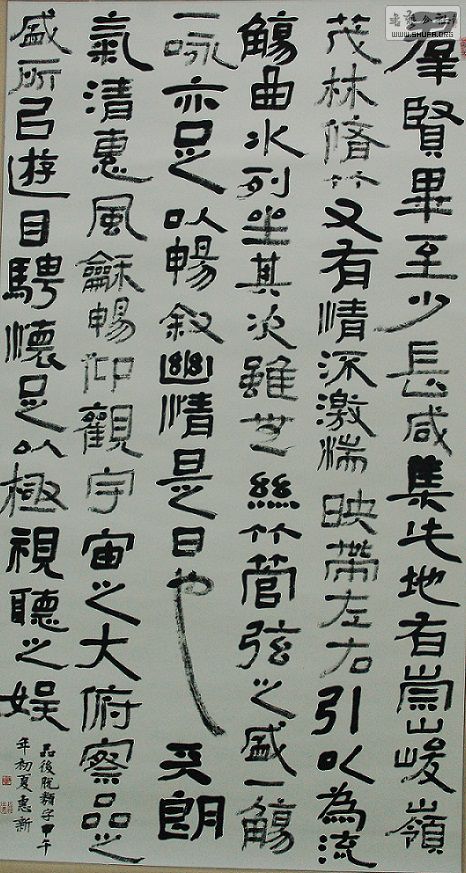 羣賢畢至少長咸集此地有崇山峻嶺
茂林脩竹又有清流激湍映帶左右引以為流
觴曲水列坐其次雖無絲竹管弦之盛一觴
一咏亦足以暢叙幽情是日也天朗
氣清惠風龢暢仰觀宇宙之大俯察品之
盛所以遊目騁懷足以極視聽之娱
品後脫類字甲午
年初夏惠新
WWW.SHUFA.ORG